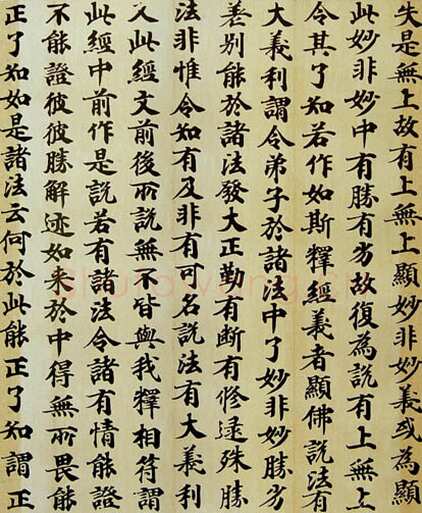 失是無上故有上無上顯妙非妙義或為顯
此妙非妙中有勝有劣故復為說有上無上
令其了知若作如斯釋經義者顯佛說法有
大義利謂令弟子於諸法中了妙非妙勝劣
差別能於諸法發大正勤有断有修逮殊勝
法非惟令知有及非有可名說法有大義利
又此經文前後所說無不皆與我釋相符謂
此經中前作是說若有諸法令諸有情能證
不能證彼彼勝解迹如来於中得無所畏能
正了知如是諸法云何於此能正了知謂正